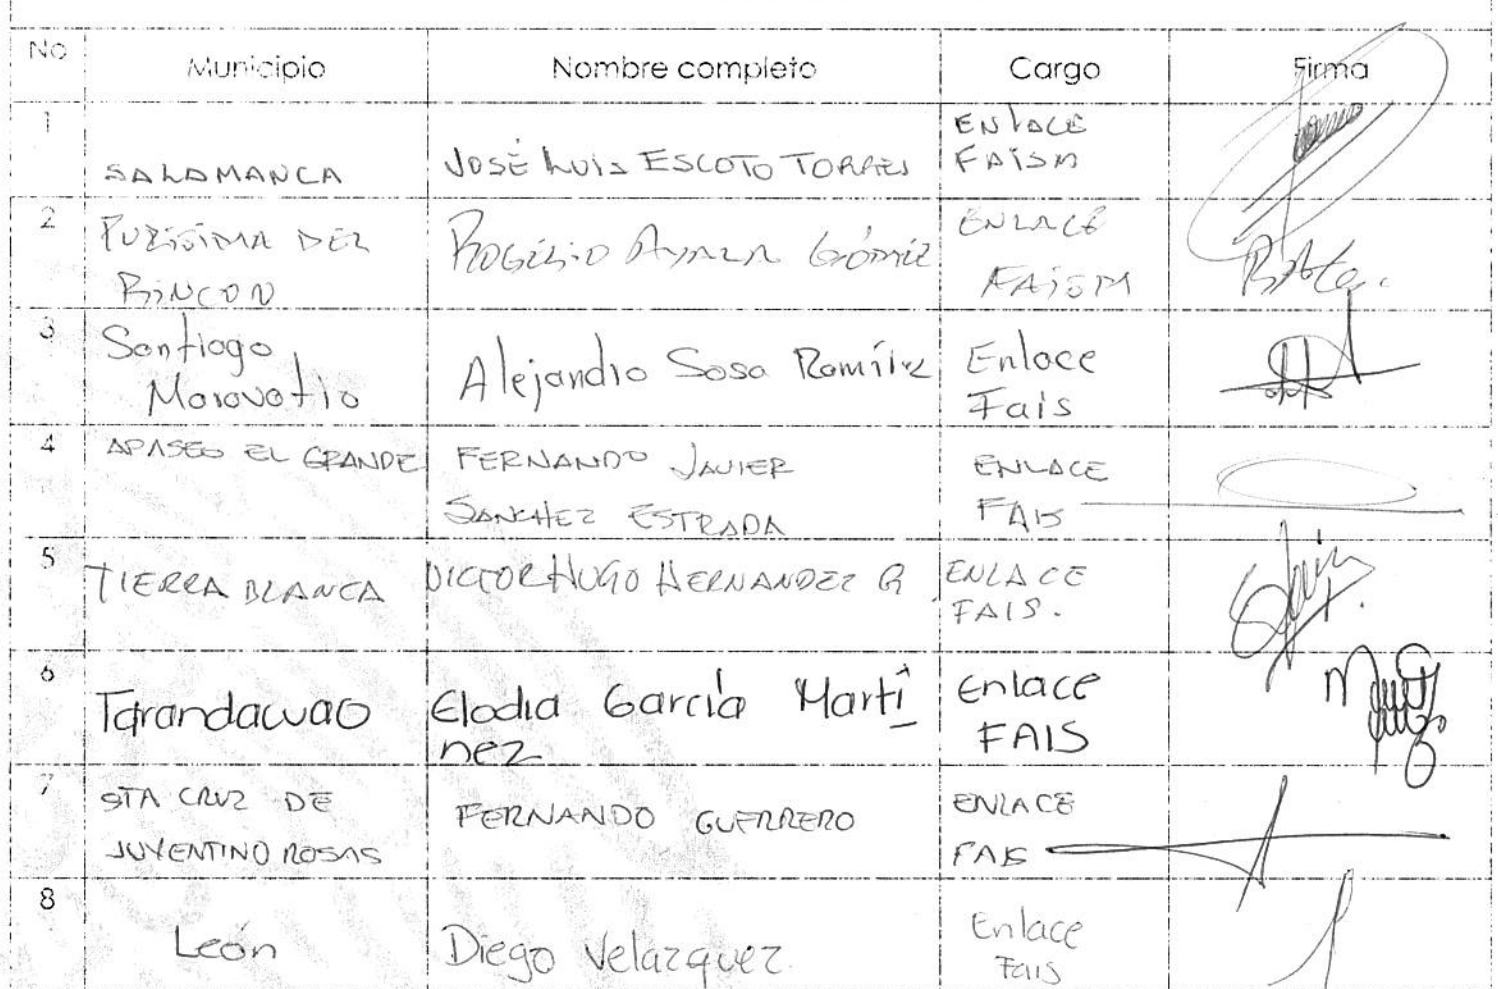 No Municipio Nombre completo Cargo Firma
1 SALAMANCA JOSÉ LUIS ESCOTO TORRES ENLACE
FAISM
2 PURÍSIMA DEL
RINCON ROGELIO AYALA GÓMEZ ENLACE
FAISM
3 Santiago
Maravatio Alejandro Sosa Ramírez Enlace
Fais
4 APASEO EL GRANDE FERNANDO JAVIER
SANCHEZ ESTRADA ENLACE
FAIS
5 TIERRA BLANCA VICTOR HUGO HERNANDEZ G ENLACE
FAIS.
6 Tarandacuao Elodia García Martí
nez Enlace
FAIS
7 STA CRUZ DE
JUVENTINO ROSAS FERNANDO GUERRERO ENLACE
FAIS
8 León Diego Velazquez. Enlace
Fais